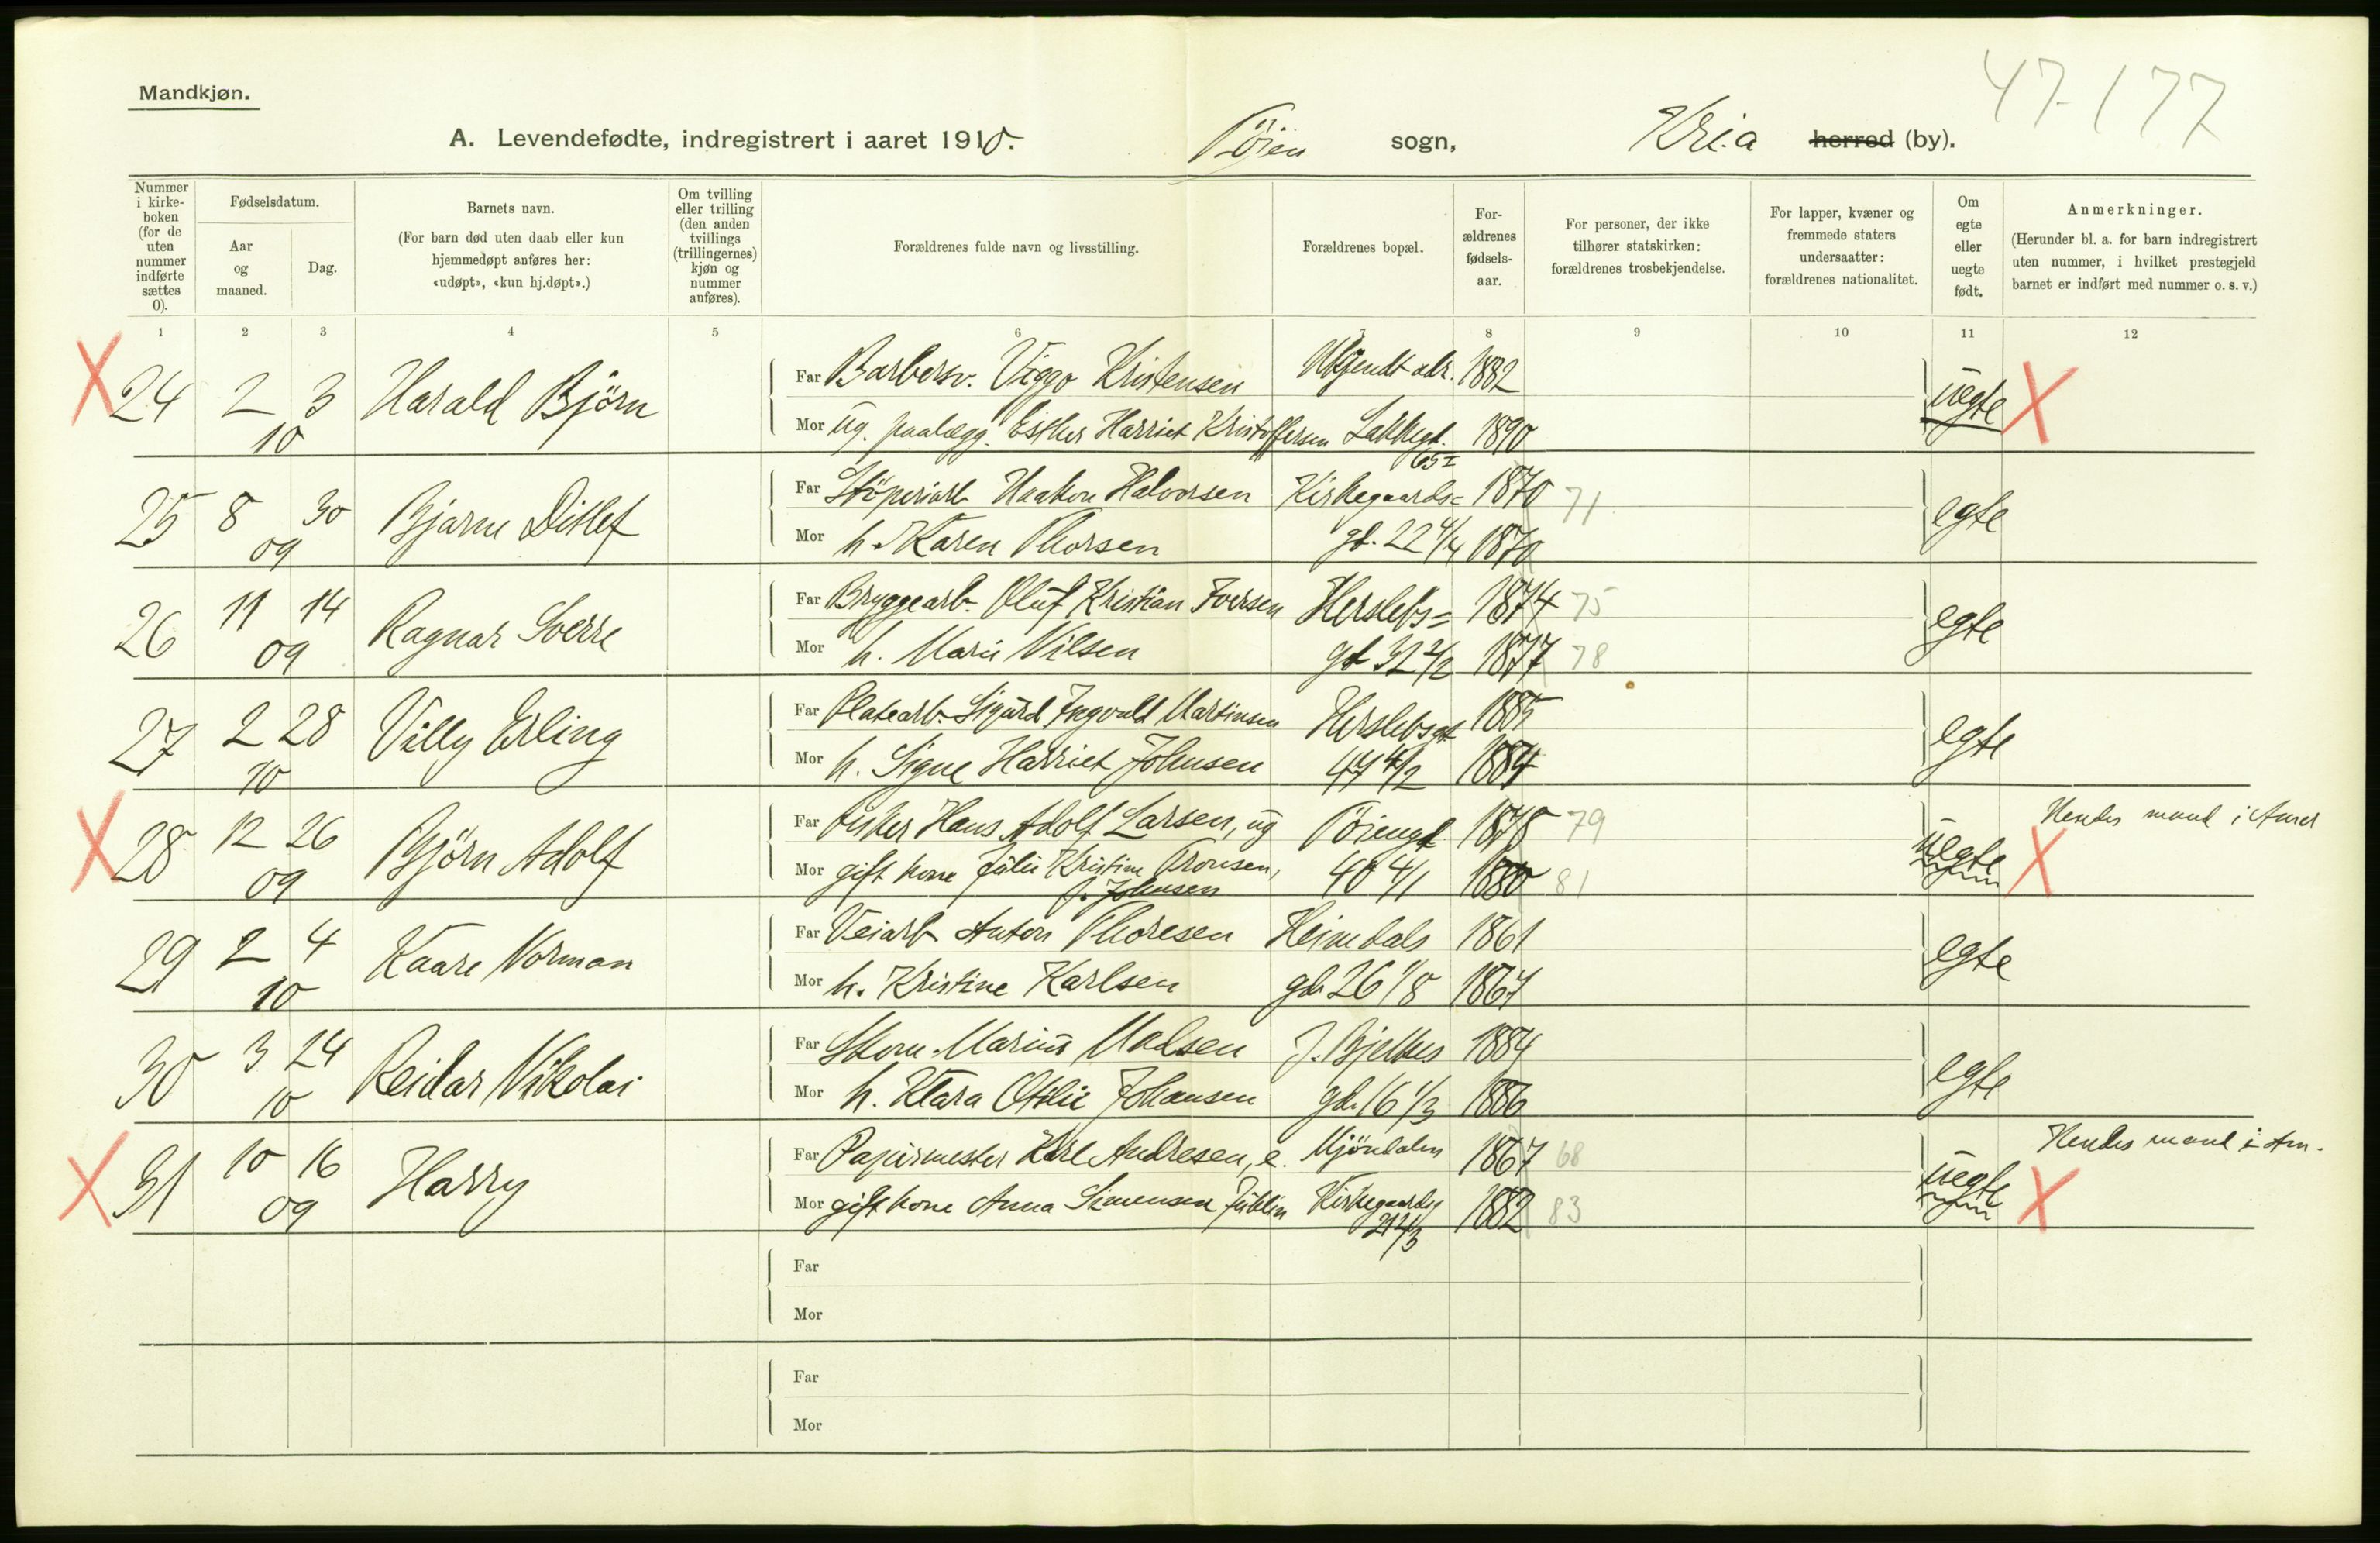 47-177
Mandkjøn.
A. Levendefødte, indregistrert i aaret 1910. Töien sogn, Kria herred (by).
Nummer i kirke-boken (for de uten nummer indførte sættes 0).
Fødselsdatum.
Aar og maaned.
Dag.
Barnets navn.
(For barn død uten daab eller kun hjemmedøpt anføres her: «udøpt», «kun hj.døpt».)
Om tvilling eller trilling (den anden tvillings (trillingernes) kjøn og nummer anføres).
Forældrenes fulde navn og livsstilling.
Forældrenes bopæl.
For-ældrenes fødsels-aar.
For personer, der ikke tilhører statskirken: forældrenes trosbekjendelse.
For lapper, kvæner og fremmede staters undersaatter: forældrenes nationalitet.
Om egte eller uegte født.
Anmerkninger.
(Herunder bl. a. for barn indregistrert uten nummer, i hvilket prestegjeld barnet er indført med nummer o. s. v.)
1 2 3 4 5 6 7 8 9 10 11 12
X 24 2 3 Harald Björn Far Barbersv. Viggo Kristensen Ukjendt adr. 1882 uegte X
10 Mor ug. paalægg. Esther Harriet Kristoffersen Lakkegt. 65 I 1890
25 8 30 Bjarne Ditlef Far Stöperiarb Haakon Halvorsen Kirkegaards= 1870 71 egte
09 Mor h. Karen Thorsen gt. 22 4/4 1870
26 11 14 Ragnar Sverre Far Bryggearb. Oluf Kristian Iversen Herslebs= 1874 75 egte
09 Mor h. Marie Nilsen gt 32 2/2 1877 78
27 2 28 Villy Erling Far Platearb. Sigurd Ingvald Martinsen Herslebsgt 1885 egte
10 Mor h. Signe Harriet Johnsen 44 4/2 1884
X 28 12 26 Björn Adolf Far Fisker Hans Adolf Larsen, ug Töiengt. 1878 79 uegte X Hendes mand i Amer
09 Mor gift kone Julie Kristine Aronsen, f. Johnsen 40 4/1 1880 81
29 2 4 Kaare Norman Far Veiarb Anton Thoresen Heimdals 1861 egte
10 Mor h. Kristine Karlsen gd. 26 1/8 1867
30 3 24 Reidar Nikolai Far Skom. Marius Madsen J. Bjelkes 1884 egte
10 Mor h. Klara Otilie Johansen gd. 16 1/3 1886
X 31 10 16 Harry Far Papirmester Karl Andresen, e. Mjöndalen 1867 68 uegte X Hendes mand i Am.
09 Mor gift kone Anna Simensen Jublin Kirkegaardsg 21 4/3 1882 83
Far
Mor
Far
Mor